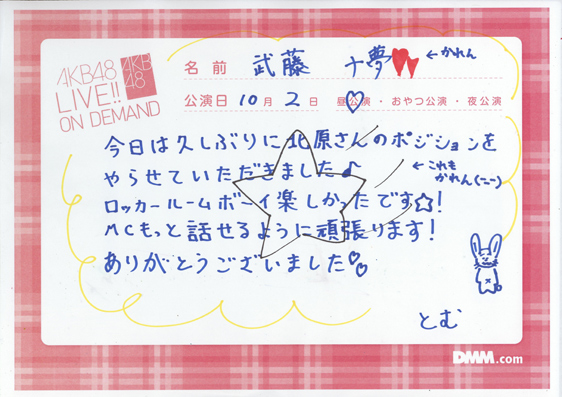 AKB48
LIVE!!
ON DEMAND
AKB
48
名前 武藤 十夢 ←かれん
公演日 10月 2日 昼公演・おやつ公演・夜公演
今日は久しぶりに北原さんのポジションを
やらせていただきました♪
←これも
かれん(ニーニ)
ロッカールームボーイ楽しかったです☆!
MCもっと話せるように頑張ります!
ありがとうございました♡♡
とむ
DMM.com